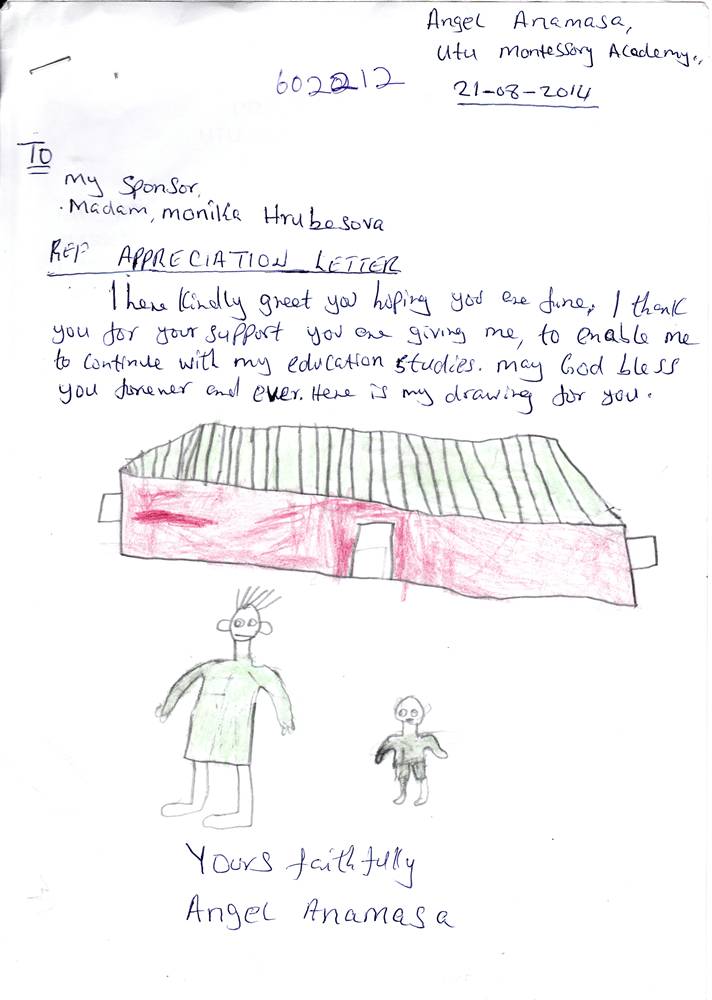 Angel Anamasa,
Utu Montessory Academy.,
602212
21-08-2014
TO
My Sponsor,
Madam, monika Hrubesova
REF APPRECIATION LETTER
I here kindly greet you hoping you are fine, I thank
you for your support you are giving me, to enable me
to continue with my education studies. may God bless
you forever and ever. Here is my drawing for you.
Yours faithfully
Angel Anamasa